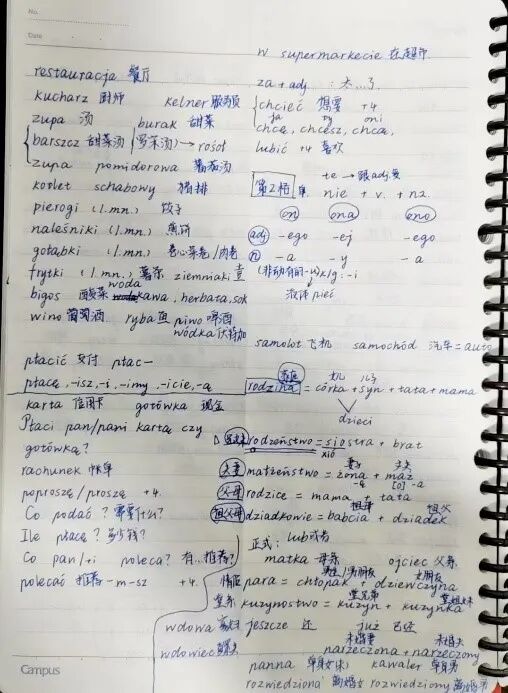 No.
Date
restauracja 餐厅
kucharz 厨师 kelner 服务员
zupa 汤 burak 甜菜
barszcz 甜菜汤 (罗宋汤) → rosół
zupa pomidorowa 番茄汤
kotlet schabowy 猪排
pierogi (l.mn.) 饺子
naleśniki (l.mn.) 煎饼
gołąbki (l.mn.) 卷心菜卷/肉卷
frytki (l.mn.) 薯条 ziemniaki
woda
bigos 酸菜 kawa, herbata, sok
wino 葡萄酒 ryba 鱼 piwo 啤酒
wódka 伏特加
płacić 支付 płac-
płacę, -isz, -i, -imy, -icie, -ą
karta 信用卡 gotówka 现金
Płaci pan/pani kartą czy
gotówką?
rachunek 账单
poproszę/proszę +4.
Co podać? 需要什么?
Ile płacę? 多少钱?
Co pan/+i poleca? 有...推荐?
polecać 推荐 -m -sz +4.
w supermarkecie 在超市
za + adj. 太...了
chcieć 想要 +4
ja ty oni
chcę, chcesz, chcą,
lubić +4 喜欢
-te → 跟adj.变
第2格 单. nie + v. + n2.
on ona ono
adj -ego -ej -ego
n -a -y -a
k/g: -i
pięć
samolot 飞机 samochód 汽车 = auto
家庭 儿子
rodzina = córka + syn + tata + mama
dzieci
rodzeństwo = siostra + brat
xió
妻子 丈夫
夫妻 małżeństwo = żona + mąż
-ą [o] -a
父母 rodzice = mama + tata
祖母 祖父
祖父母 dziadkowie = babcia + dziadek
正式: lub 或者
matka 母亲 ojciec 父亲
男生/男朋友 女朋友
情侣 para = chłopak + dziewczyna
堂兄弟 堂姐妹
堂亲 kuzynostwo = kuzyn + kuzynka
wdowa 寡妇 jeszcze 还 już 已经
未婚妻 未婚夫
wdowiec 鳏夫 narzeczona + narzeczony
panna 单身女 kawaler 单身男
rozwiedziona 离婚女 rozwiedziony 离婚男
Campus